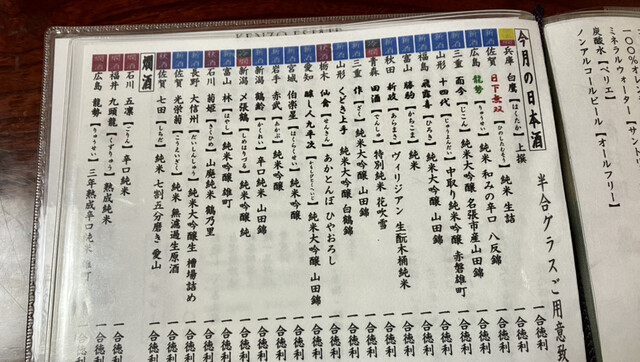 一〇〇％オ
ミネラルウォーター【サン
炭酸水【ペリエ】
ノンアルコールビール【オールフリー】
今月の日本酒
半合グラスご用意致
兵庫 白鷹【はくたか】上撰 一合徳利
佐賀 日下無双【ひのしたむそう】純米 生詰 一合徳利
広島 龍勢【りゅうせい】純米 和みの辛口 八反錦 一合徳利
三重 而今【じこん】純米大吟醸 名張市産山田錦 一合徳利
山形 十四代【じゅうよんだい】中取り純米吟醸 赤磐雄町 一合徳利
福島 飛露喜【ひろき】純米大吟醸 一合徳利
富山 勝駒【かちこま】純米 一合徳利
秋田 新政【あらまさ】ヴィリジアン 生酛木桶純米 一合徳利
青森 田酒【でんしゅ】特別純米 花吹雪 一合徳利
三重 作【ざく】純米大吟醸 山田錦 一合徳利
山形 くどき上手 純米大吟醸 白鶴錦 一合徳利
栃木 仙禽【せんきん】あかとんぼ ひやおろし 一合徳利
愛知 醸し人九平次【かもしびとくへいじ】純米大吟醸 山田錦 一合徳利
宮城 伯楽星【はくらくせい】純米吟醸 一合徳利
岩手 赤武【あかぶ】純米吟醸 一合徳利
新潟 鶴齢【かくれい】辛口純米 山田錦 一合徳利
新潟 〆張鶴【しめはりつる】純米吟醸 純 一合徳利
富山 林【はやし】純米吟醸 雄町 一合徳利
石川 菊姫【きくひめ】山廃純米 鶴乃里 一合徳利
長野 大信州【だいしんしゅう】純米大吟醸生 槽場詰め 一合徳利
佐賀 光栄菊【こうえいぎく】純米 無濾過生原酒 一合徳利
佐賀 七田【しちだ】純米 七割五分磨き 愛山 一合徳利
燗酒
石川 五凛【ごりん】辛口純米 一合徳利
福井 九頭龍【くずりゅう】熟成純米 一合徳利
広島 龍勢【りゅうせい】三年熟成辛口純米 一合徳利